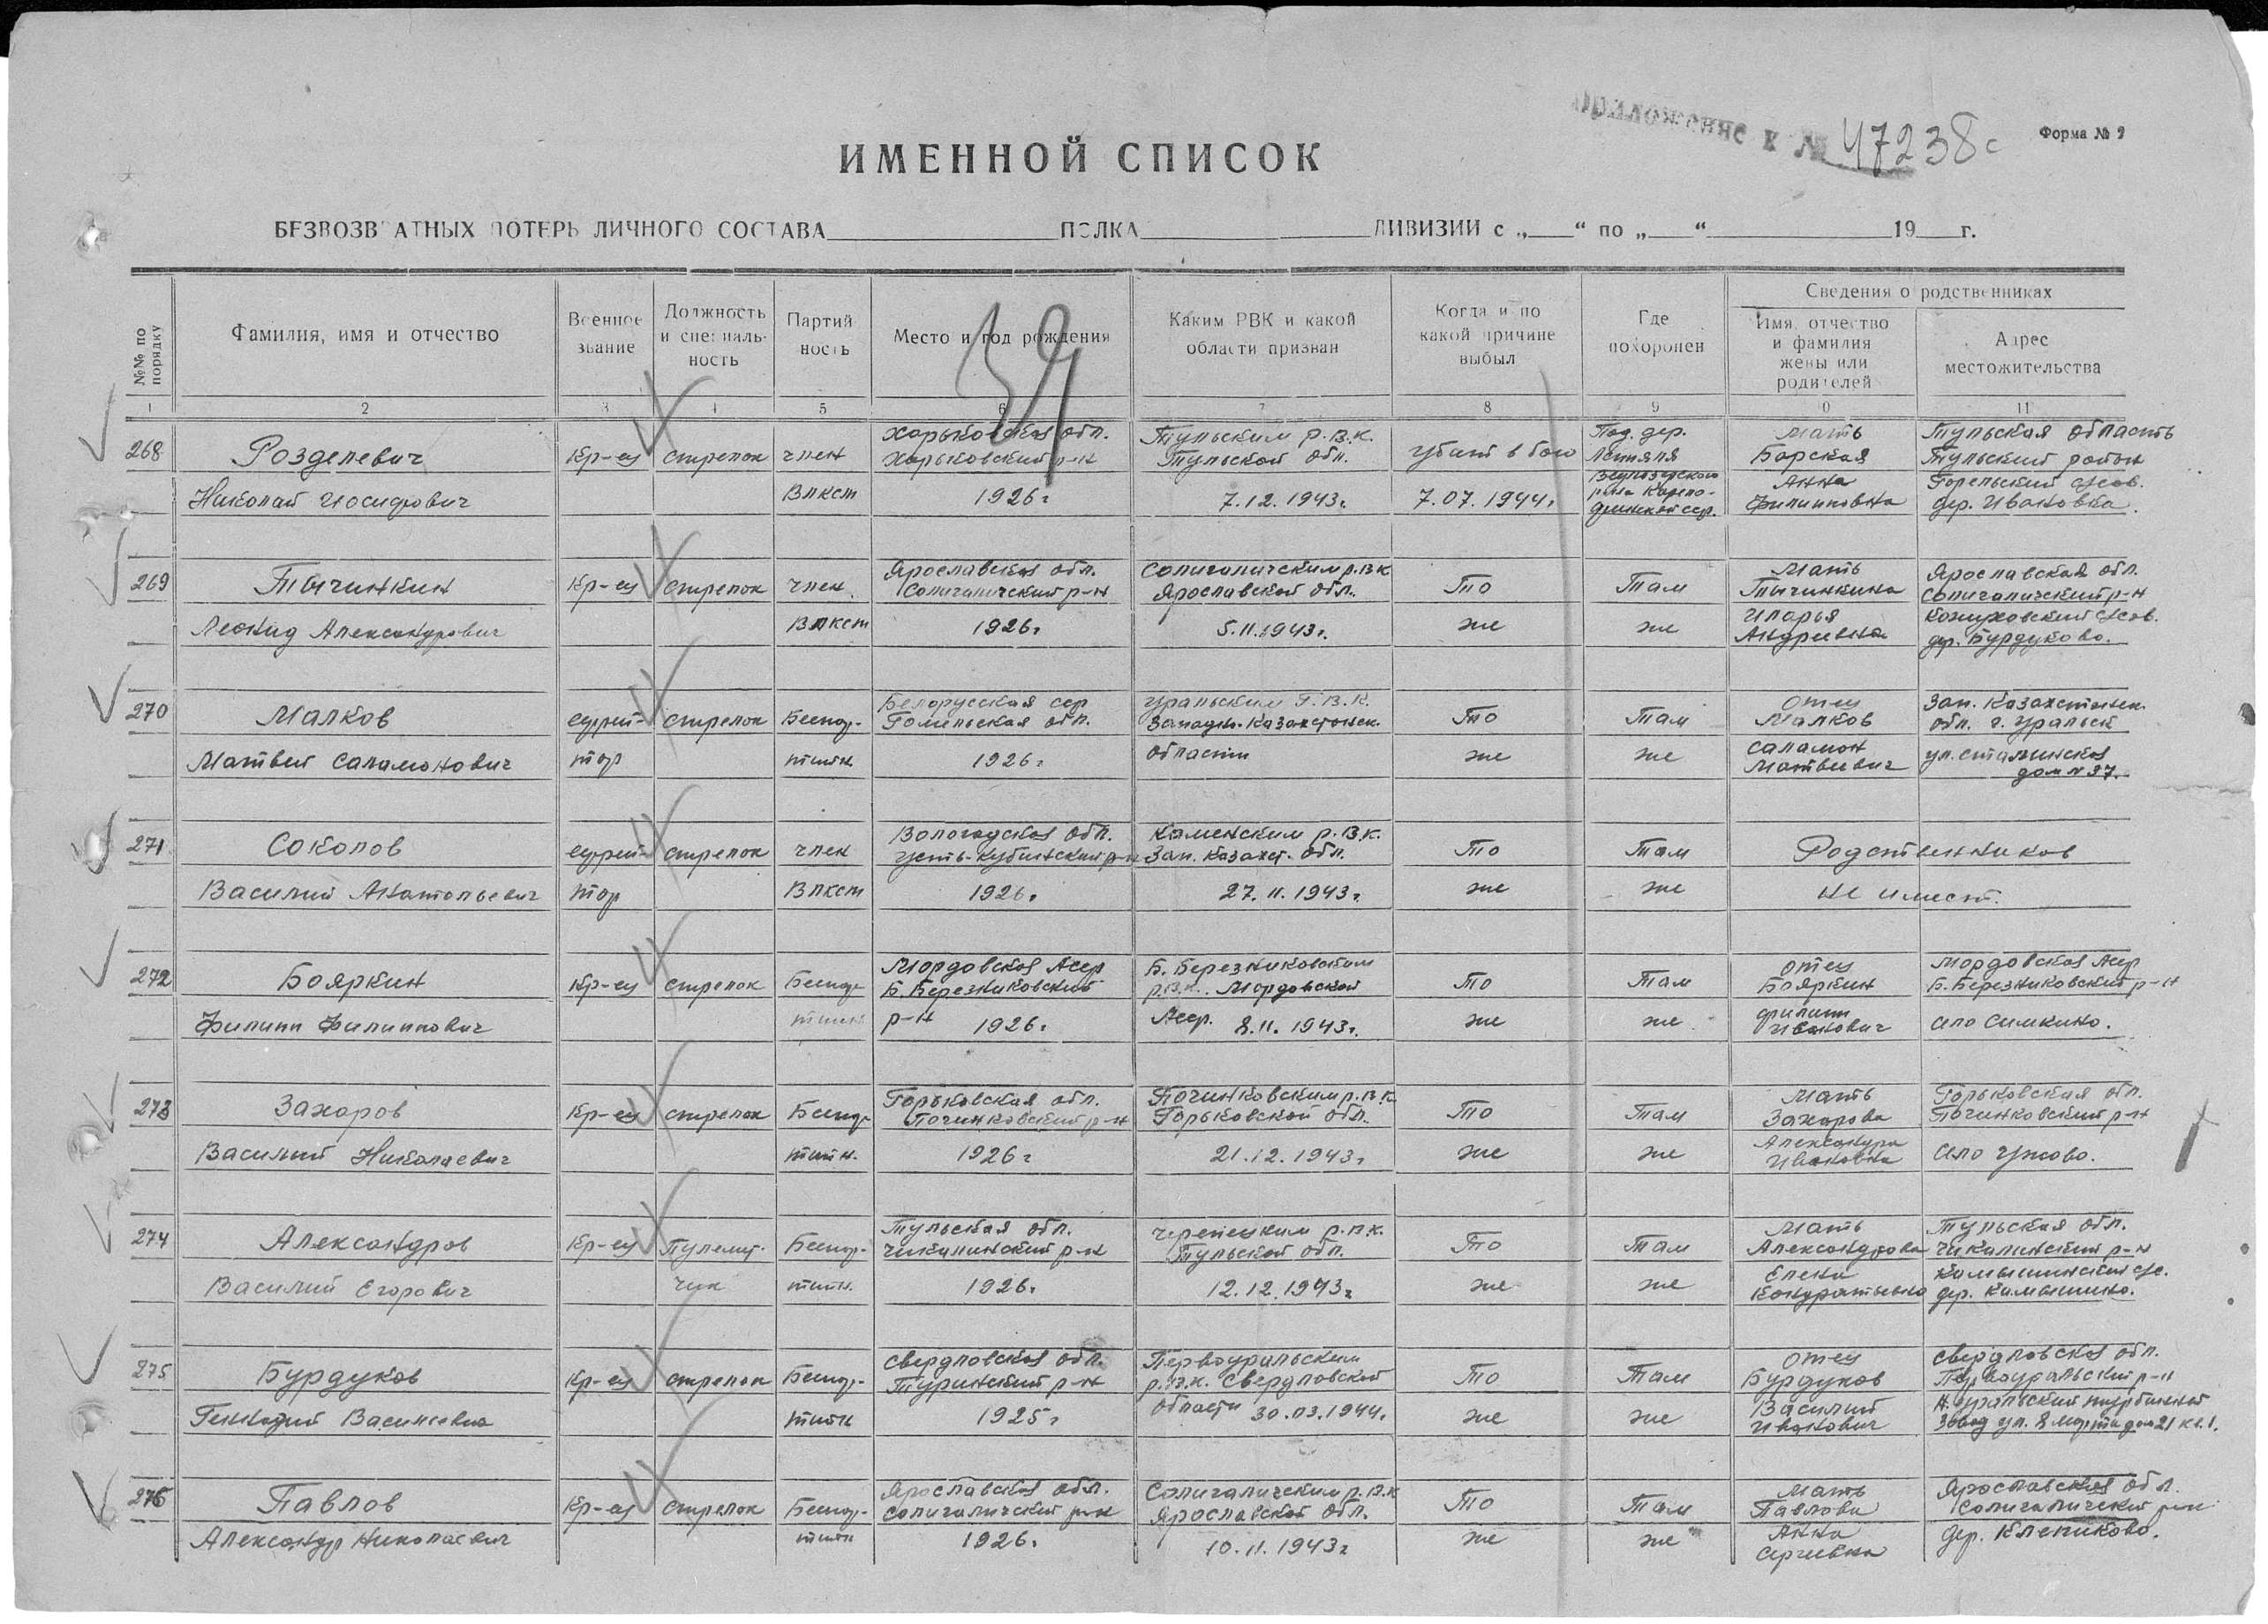 Приложение к № 47238с
Форма № 2
ИМЕННОЙ СПИСОК
БЕЗВОЗВРАТНЫХ ПОТЕРЬ ЛИЧНОГО СОСТАВА ПОЛКА ДИВИЗИИ с „ “ по „ “ 19 г.
39
№№ по порядку
Фамилия, имя и отчество
Военное звание
Должность и специальность
Партийность
Место и год рождения
Каким РВК и какой области призван
Когда и по какой причине выбыл
Где похоронен
Сведения о родственниках
Имя, отчество и фамилия жены или родителей
Адрес местожительства
1 2 3 4 5 6 7 8 9 10 11
268 Розделевич Николай Иосифович
Кр-ец стрелок член Влксм
Харьковская обл. Харьковский р-н 1926г
Тульским р.в.к. Тульской обл. 7.12.1943г.
убит в бою 7.07.1944г.
Под. дер.
Мать Барская Анна Филипповна
Тульская область Тульский район Горельский с/сов. дер. Ивановка.
269 Тычинкин Леонид Александрович
Кр-ец стрелок член Влксм
Ярославская обл. Солигаличский р-н 1926г
Солигаличским р.в.к Ярославской обл. 5.11.1943г.
То же
Там же
Мать Тычинкина Иларья Андреевна
Ярославская обл. Солигаличский р-н Кожуховский с/сов. дер. Бурдуково.
270 Малков Матвей Саламонович
ефрейтор стрелок Беспартийн
Белорусская сср Гомельская обл. 1926г
Уральским Г.В.К. Западн. Казахстанск. области
То же
Там же
отец Малков Саламон Матвеевич
Зап. Казахстанск. обл. г. Уральск ул. Сталинская дом № 37.
271 Соколов Василий Анатольевич
ефрейтор стрелок член Влксм
Вологодская обл. Усть-Кубинский р-н 1926г.
Каменским р.в.к. Зап. Казахст. обл. 27.11.1943г.
То же
Там же
Родственников не имеет.
272 Бояркин Филипп Филиппович
Кр-ец стрелок Беспартийн
Мордовская Асср Б. Березниковский р-н 1926г.
Б. Березниковским р.в.к. Мордовской Асср. 8.11.1943г.
То же
Там же
отец Бояркин Филипп Иванович
Мордовская Асср Б. Березниковский р-н село Симкино.
273 Захаров Василий Николаевич
Кр-ец стрелок Беспартийн.
Горьковская обл. Починковский р-н 1926г
Починковским р.в.к. Горьковской обл. 21.12.1943г.
То же
Там же
Мать Захарова Александра Ивановна
Горьковская обл. Починковский р-н село Ужово.
274 Александров Василий Егорович
Кр-ец Пулеметчик Беспартийн.
Тульская обл. Чекалинский р-н 1926г.
Черепецким р.в.к. Тульской обл. 12.12.1943г
То же
Там же
Мать Александрова Елена Кондратьевна
Тульская обл. Чекалинский р-н дер. Камышино.
275 Бурдуков Геннадий Васильевич
Кр-ец стрелок Беспартийн
Свердловская обл. Туринский р-н 1925г
Первоуральским р.в.к. Свердловской области 30.03.1944г.
То же
Там же
отец Бурдуков Василий Иванович
Свердловская обл. Первоуральский р-н завод ул. 8 марта дом 21 кв. 1.
276 Павлов Александр Николаевич
Кр-ец стрелок Беспартийн
Ярославская обл. Солигаличский р-н 1926г.
Солигаличским р.в.к Ярославской обл. 10.11.1943г
То же
Там же
Мать Павлова Анна Сергеевна
Ярославская обл. Солигаличский р-н дер. Клепиково.